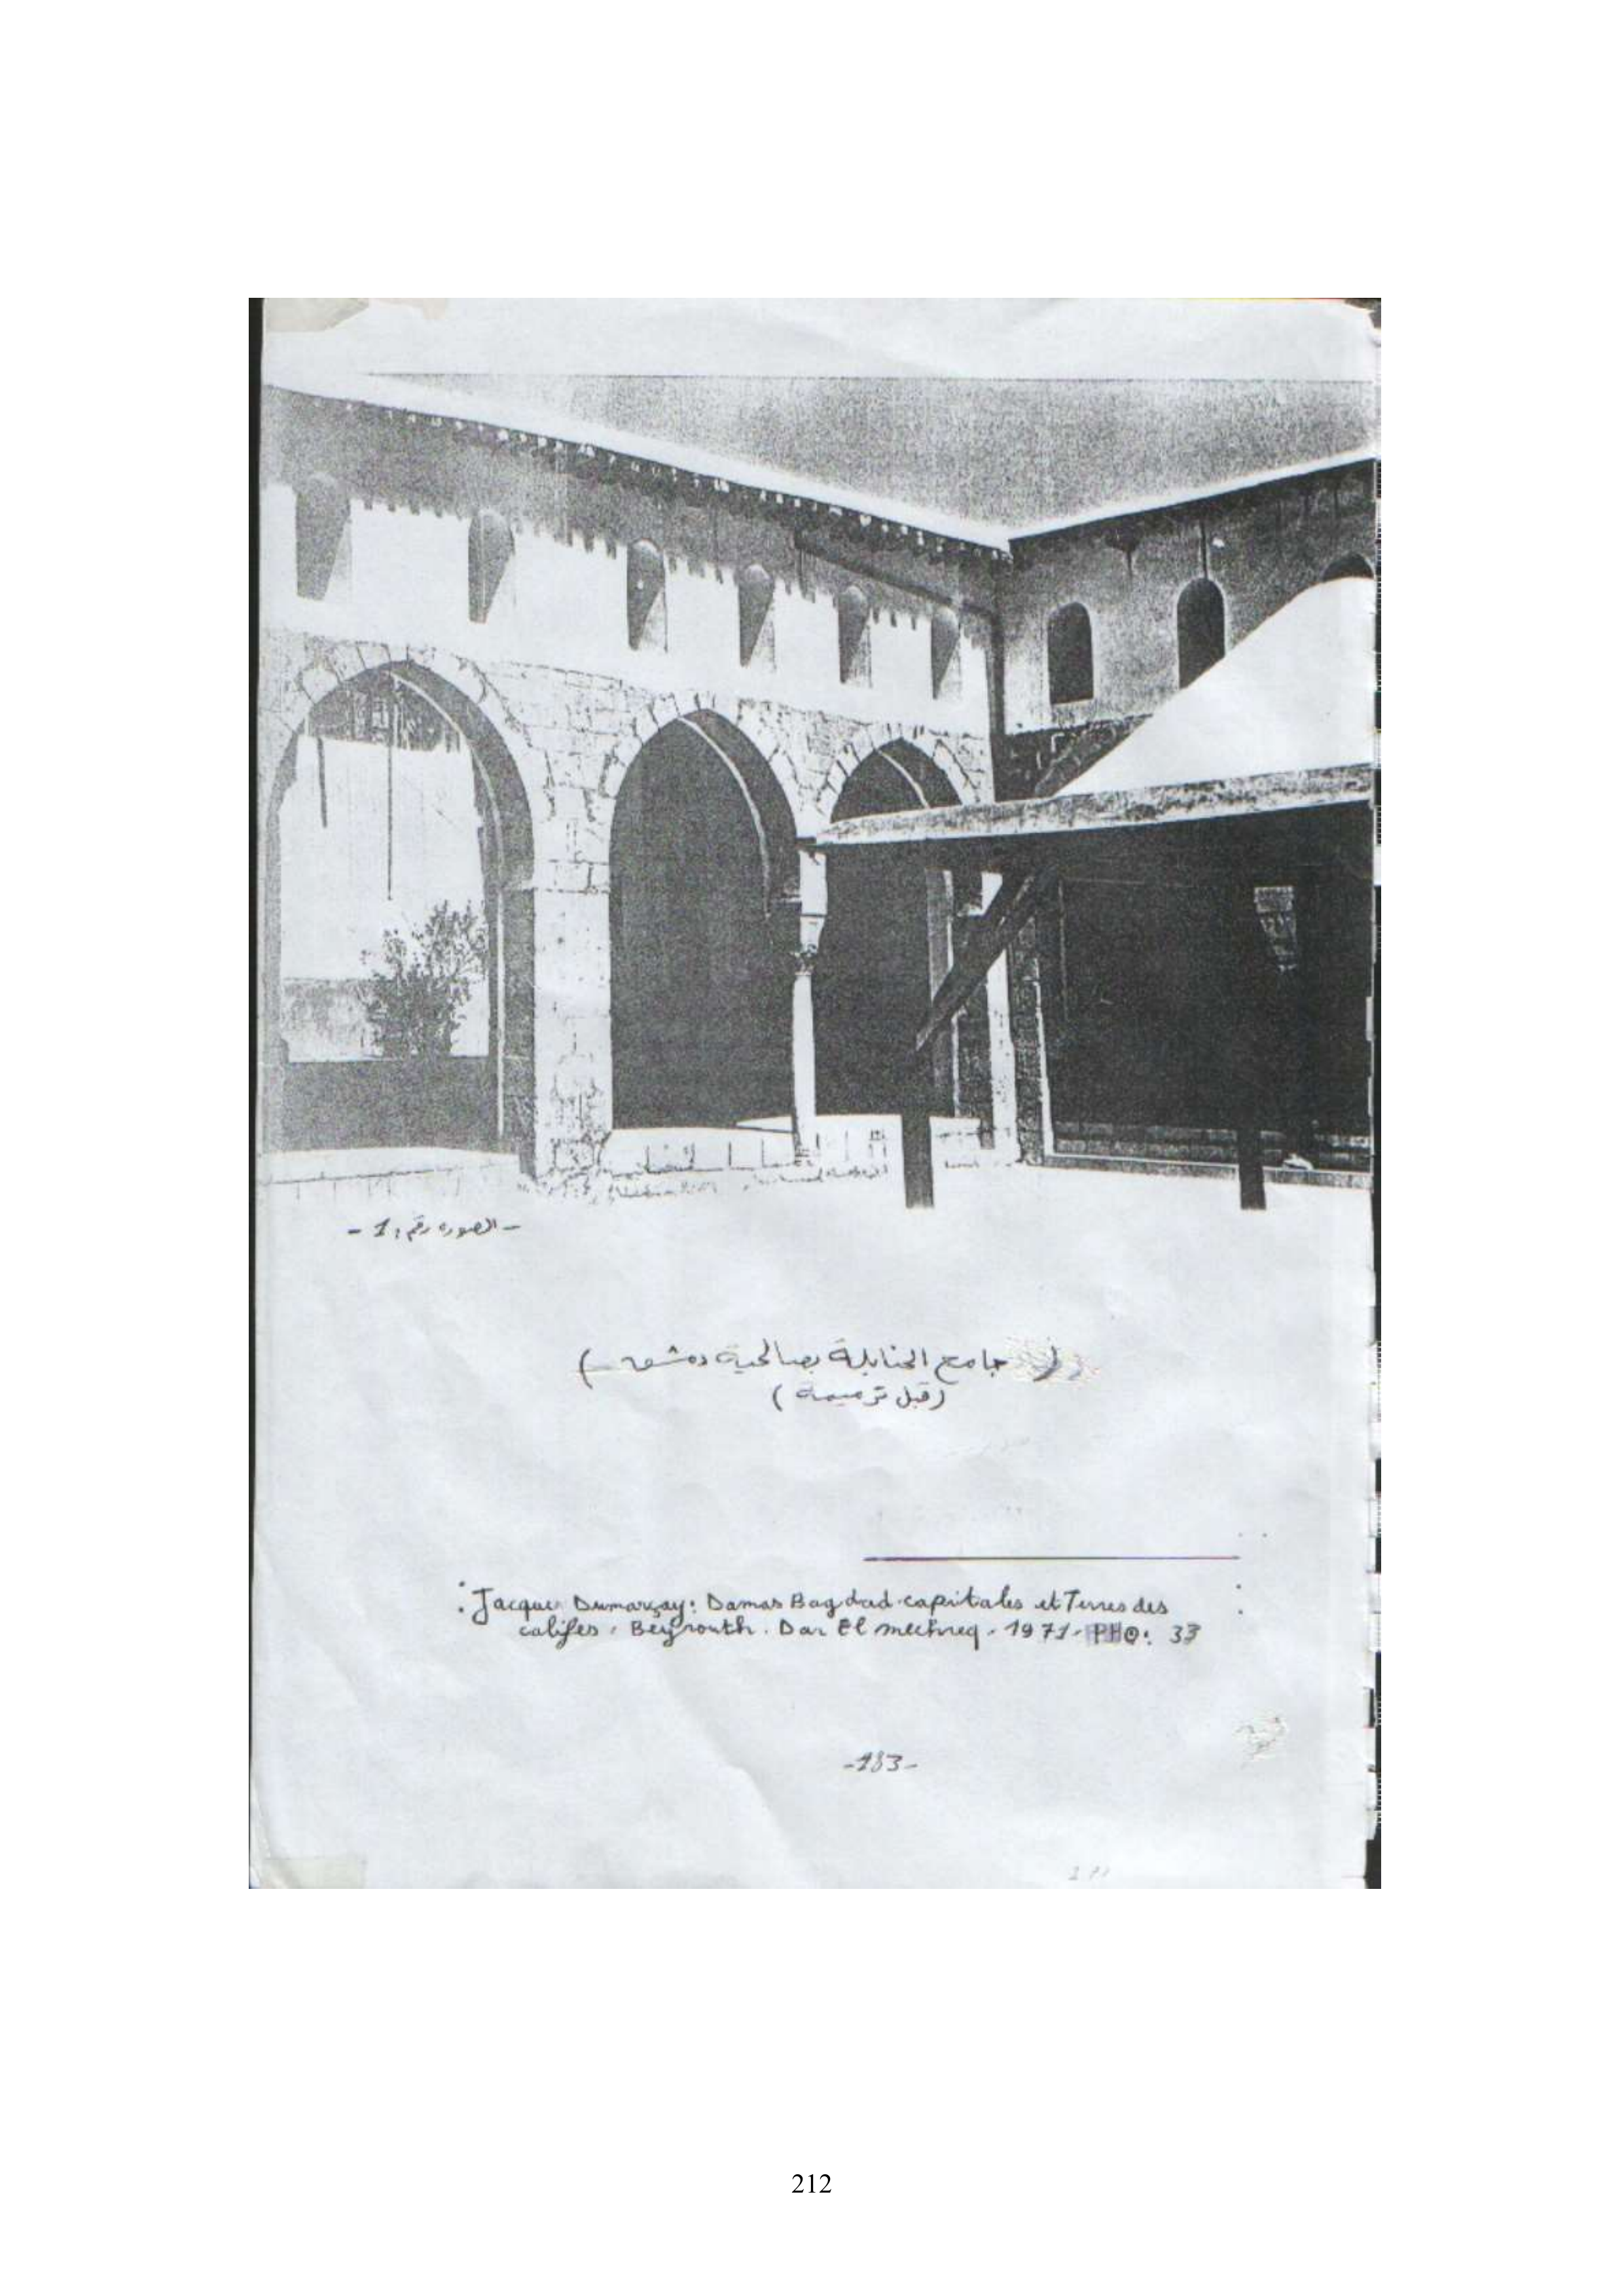 - الصورة رقم: 1 -
( جامع الحنابلة بصالحية دمشق )
( قبل ترميمه )
: Jacques Dumarçay: Damas Bagdad capitales et Terres des
califes. Beyrouth. Dar El mechreq. 1971. PHO: 33
-183-
212